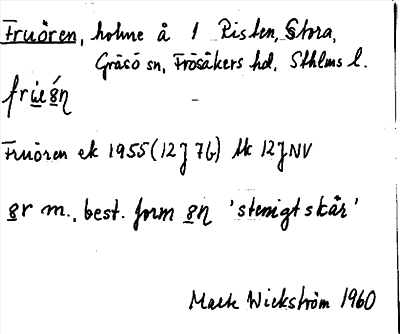 Fruören, holme å 1 Risten, Stora,
Gräsö sn, Frösåkers hd, Sthlms l.
Fruören ek 1955 (12J 7b) tk 12J NV
ör m., best. form 'stenigt skär'
Märta Wickström 1960